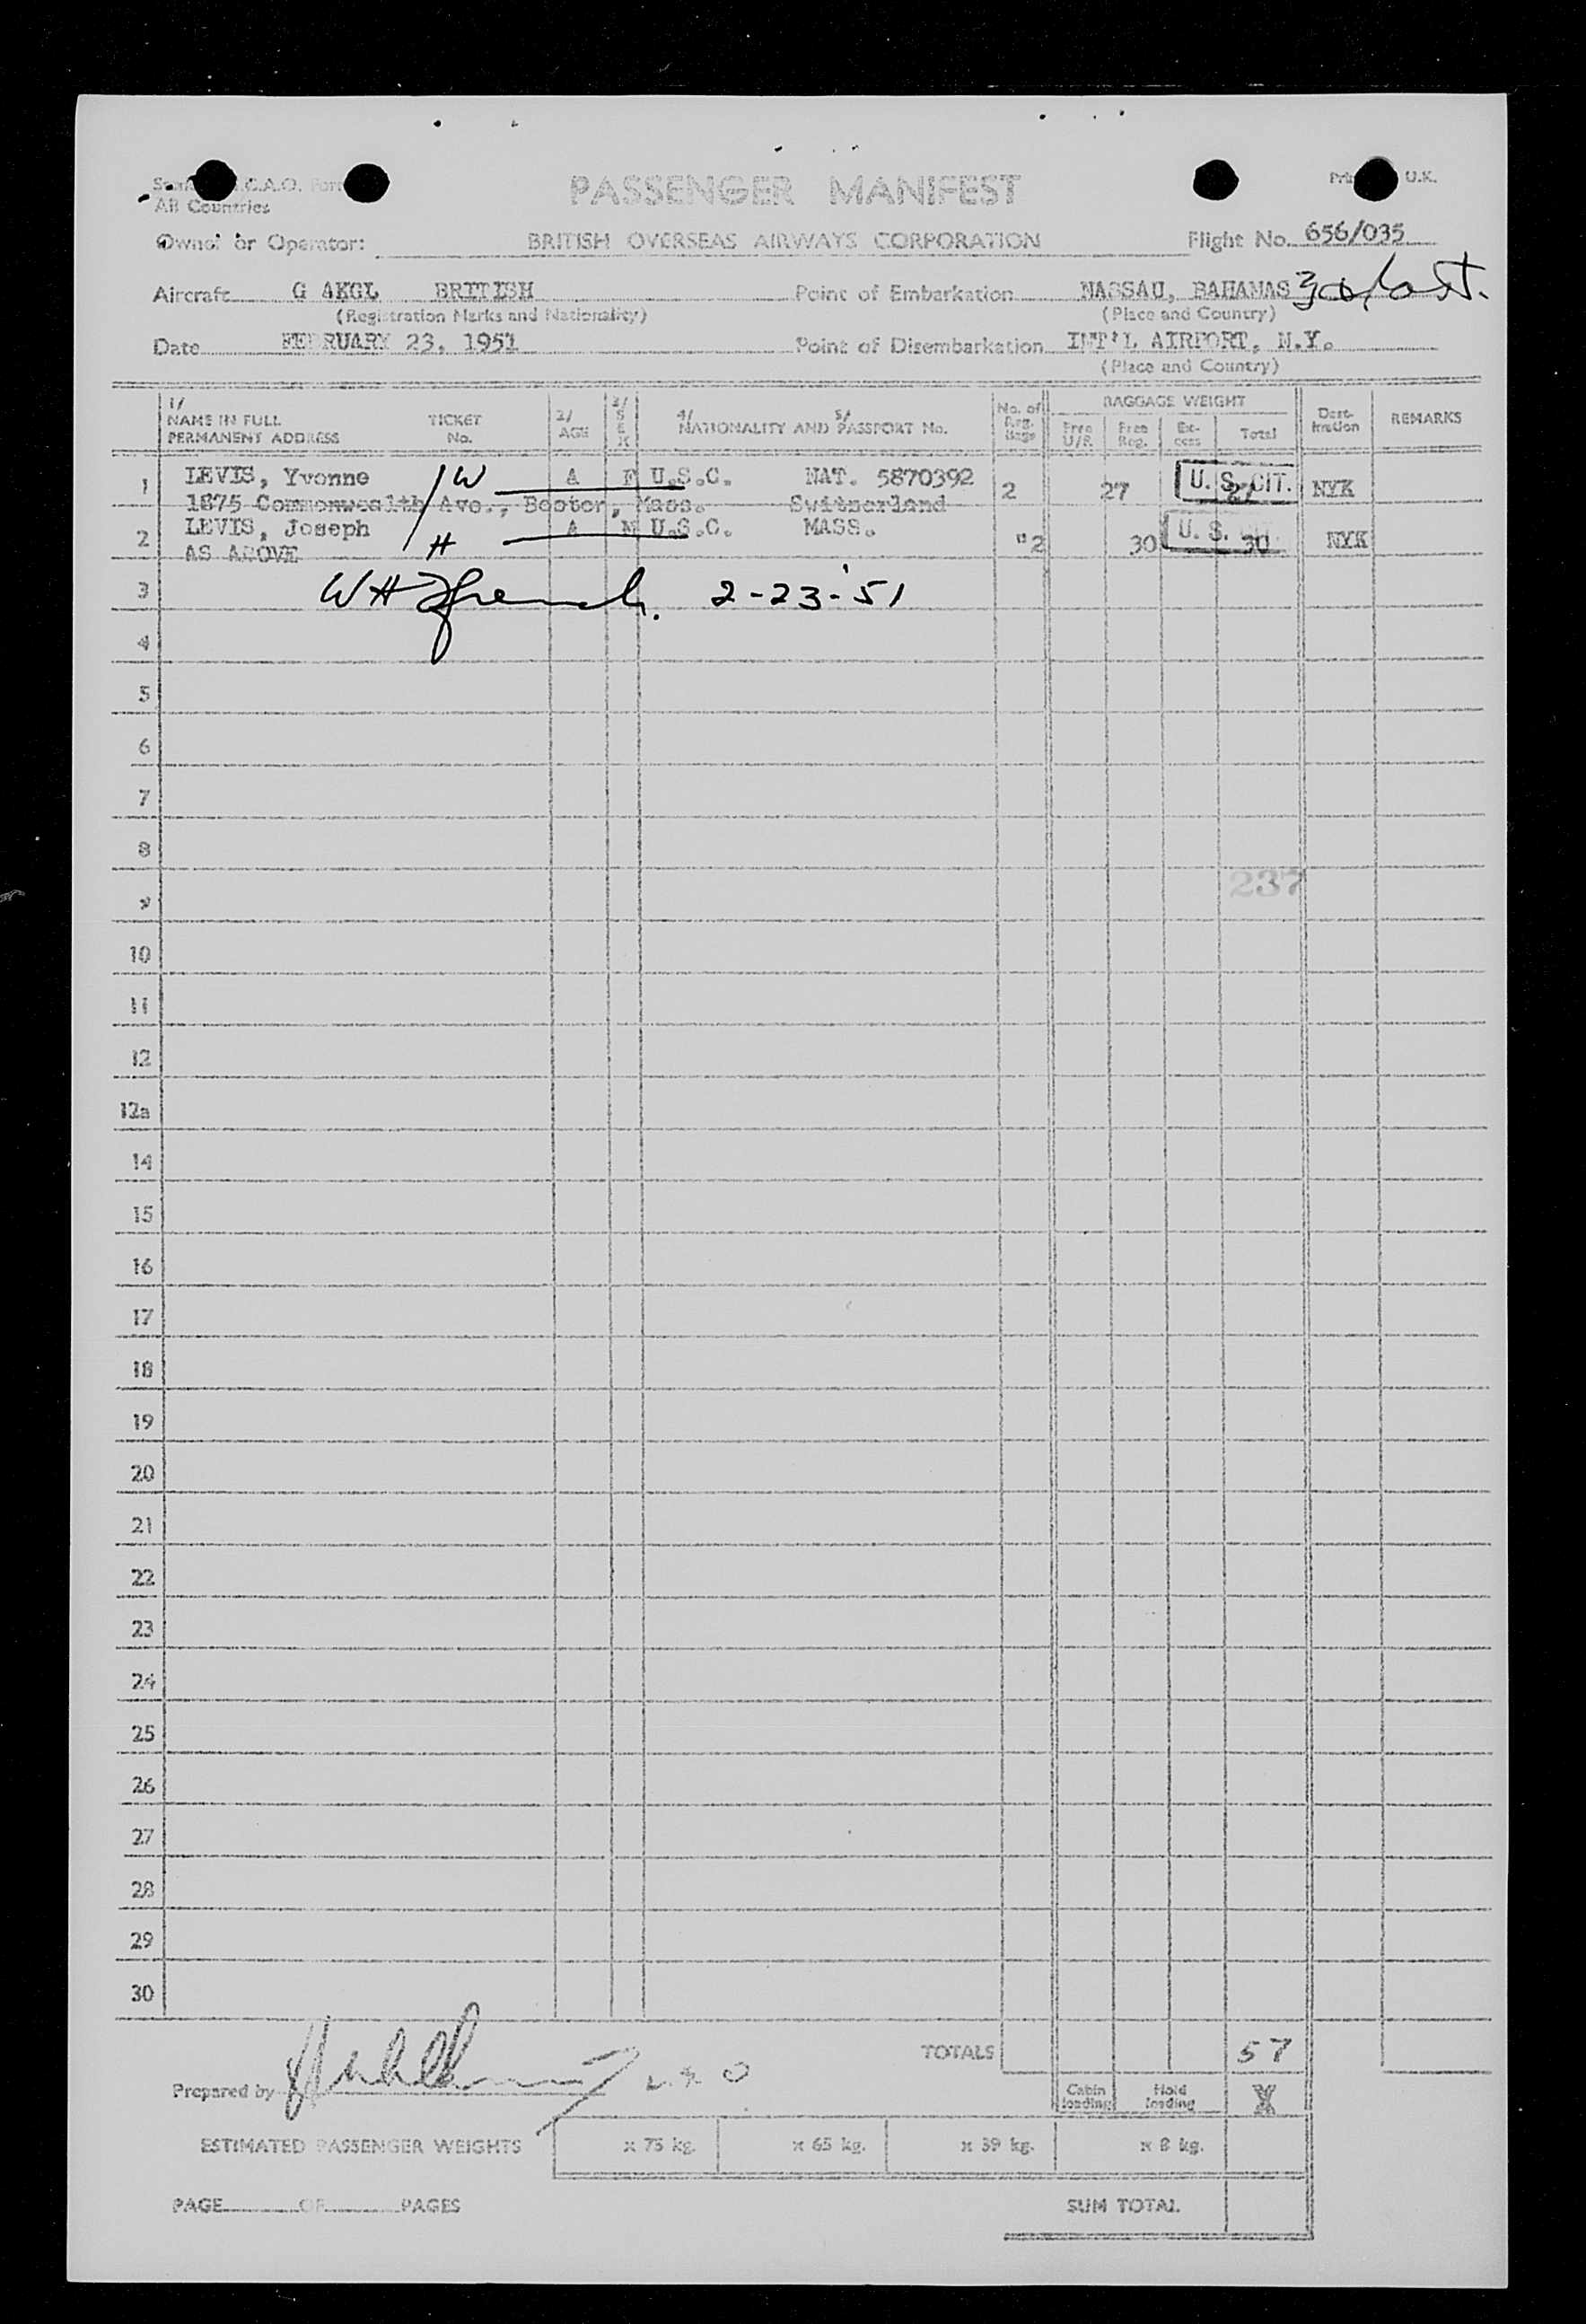 I.C.A.O. U.K.
All Countries
PASSENGER MANIFEST
Owner or Operator: BRITISH OVERSEAS AIRWAYS CORPORATION Flight No. 656/035
Aircraft G AKGL BRITISH Point of Embarkation NASSAU, BAHAMAS
(Registration Marks and Nationality) (Place and Country)
Date FEBRUARY 23, 1951 Point of Disembarkation INT'L AIRPORT, N.Y.
(Place and Country)
1/ NAME IN FULL PERMANENT ADDRESS TICKET No. 2/ AGE 3/ SEX 4/ 5/ NATIONALITY AND PASSPORT No. No. of Reg. Bags BAGGAGE WEIGHT Free U/R. Free Reg. Ex-cess Total Dest-ination REMARKS
1 LEVIS, Yvonne W A F U.S.C. NAT. 5870392 2 27 U.S. CIT. 27 NYK
1875 Commonwealth Ave., Boston, Mass. Switzerland
2 LEVIS, Joseph H A M U.S.C. MASS. "2 30 U.S. 30 NYK
AS ABOVE
3 2-23-'51
4
5
6
7
8
237
9
10
11
12
12a
14
15
16
17
18
19
20
21
22
23
24
25
26
27
28
29
30
TOTALS 57
Prepared by
Cabin loading Hold loading X
ESTIMATED PASSENGER WEIGHTS x 75 kg. x 65 kg. x 39 kg. x 8 kg.
PAGE OF PAGES SUM TOTAL